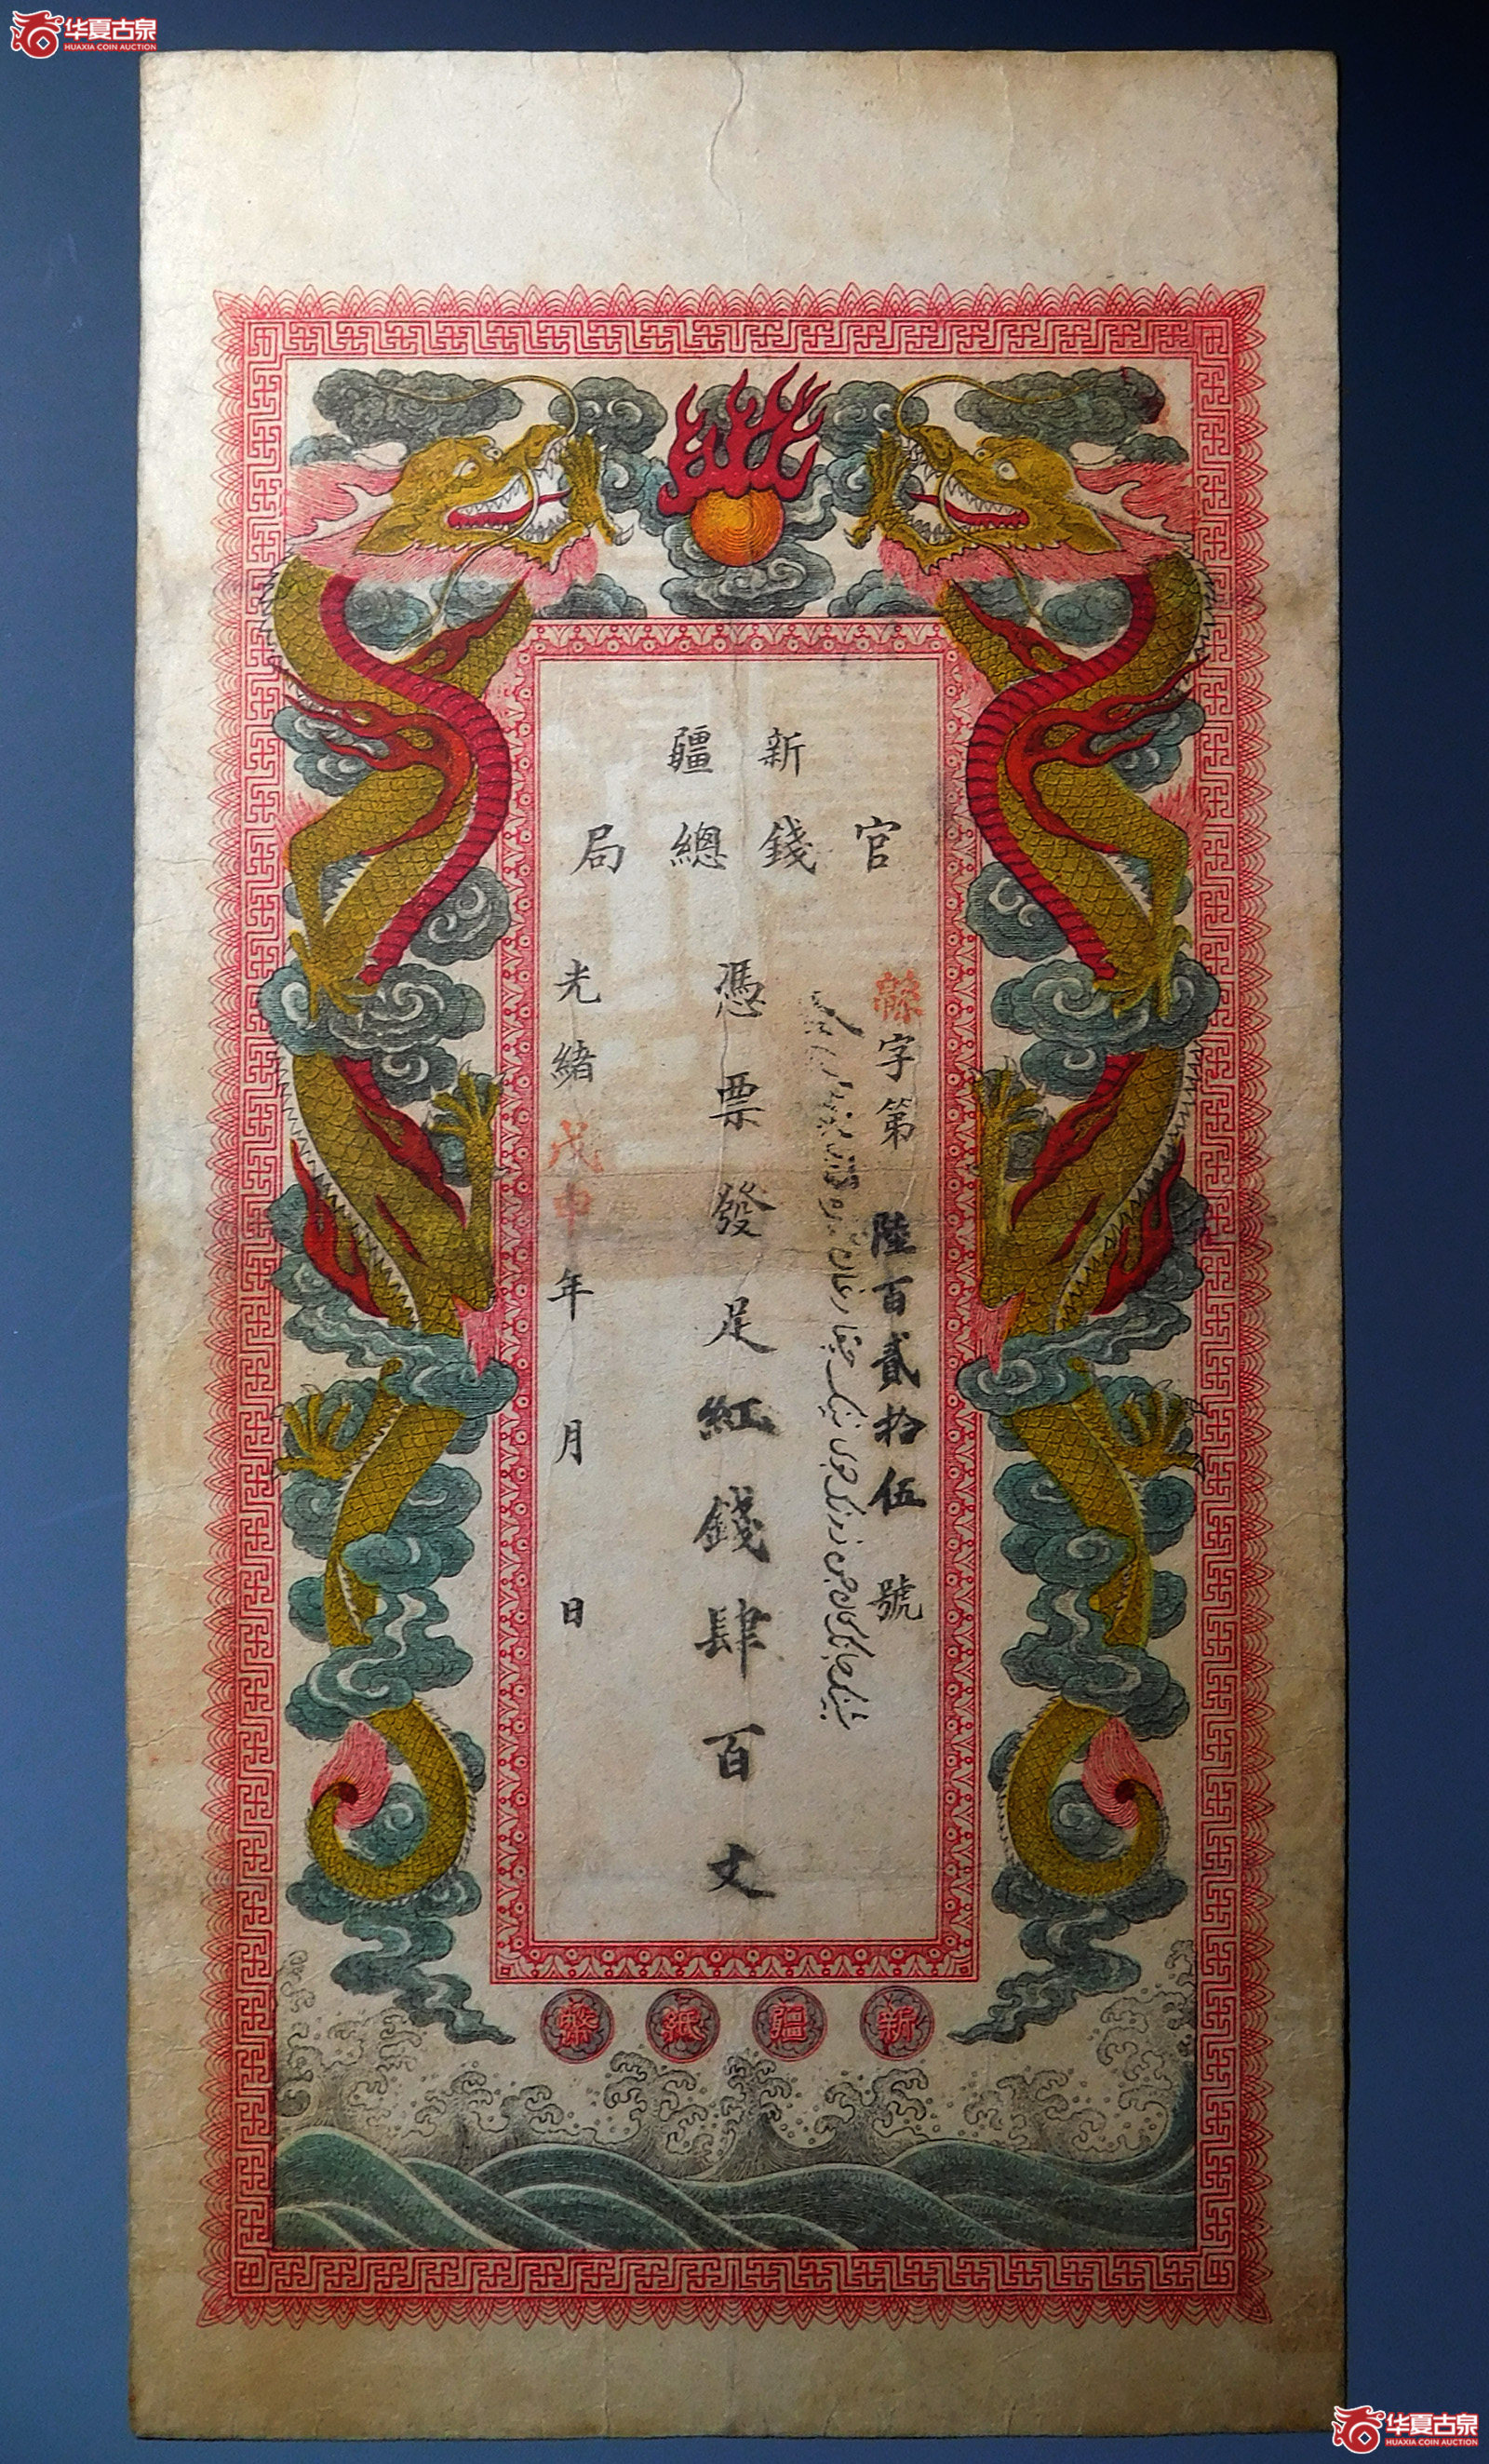 华夏古泉
HUAXIA COIN AUCTION
新疆
官錢總局
字第陸百貳拾伍號
憑票發足紅錢肆百文
光緒戊申年月日
新疆紙幣
华夏古泉
HUAXIA COIN AUCTION